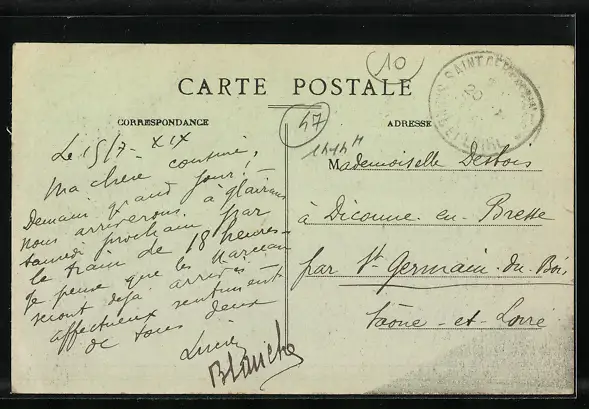 10
CARTE POSTALE
47
CORRESPONDANCE
ADRESSE
Le 15/7- XIX
Ma chère cousine,
Demain grand jour!
nous arriverons à
samedi prochain par
le train de 18 heures-
Je pense que les Marceau
seront déjà arrivés
affectueux sentiment
de tous deux
Lucie
Blanche
Mademoiselle Desbois
à Diconne-en-Bresse
par St Germain-du-Bois
Saône-et-Loire
SAINT GERMAIN